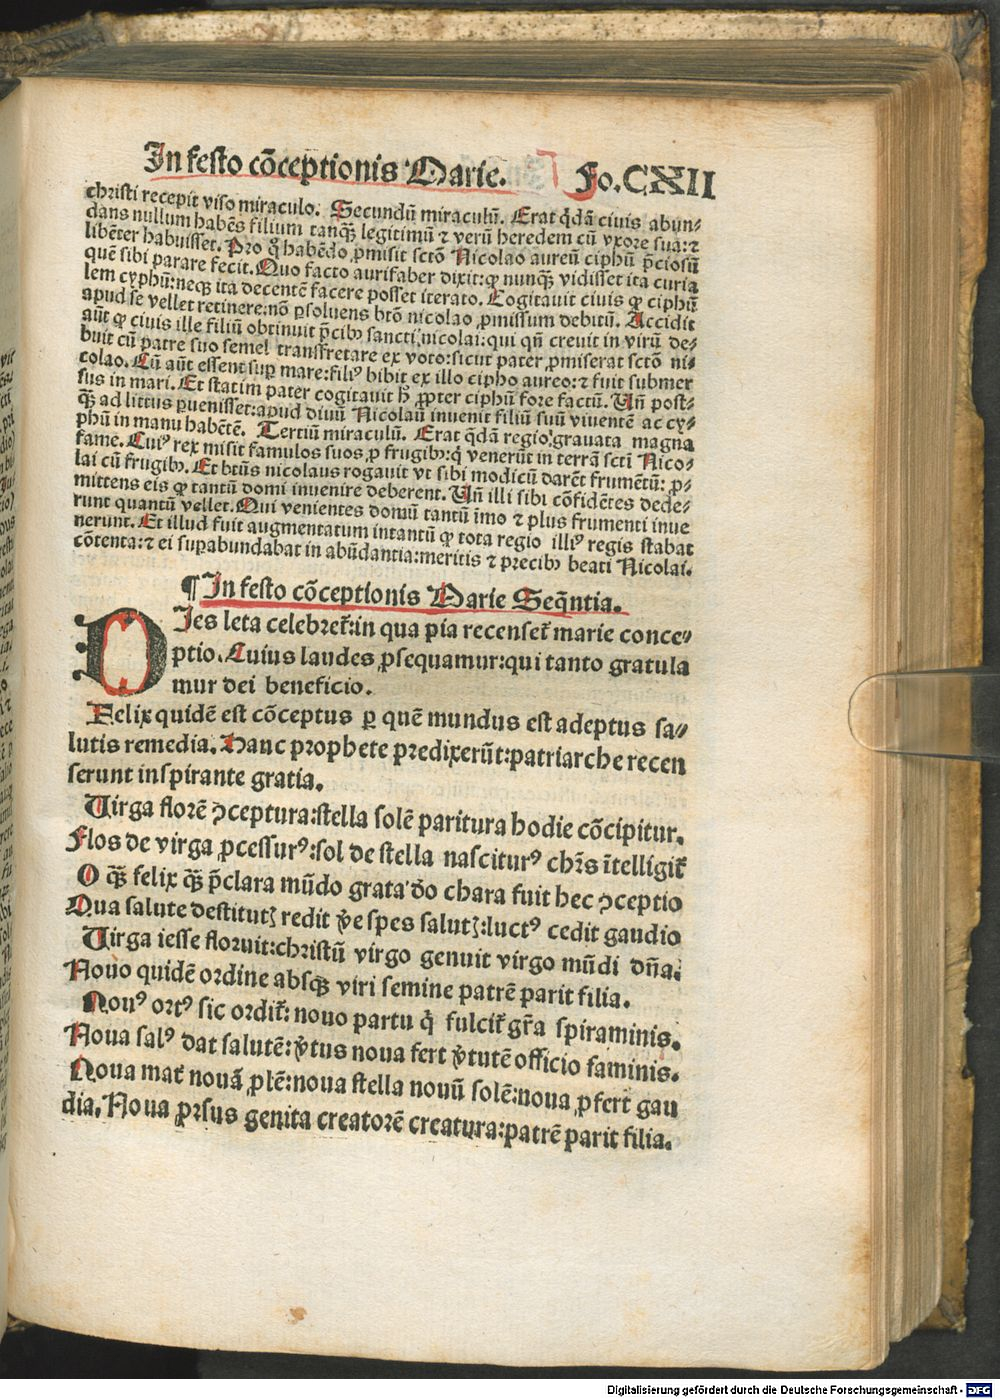 In festo cōceptionis Marie. Fo. CXII
christi recepit viso miraculo. Secundū miraculū. Erat q̄dā ciuis abun⸗
dans nullum habēs filium tanq̄ꝫ legitimū ⁊ verū heredem cū vxore sua: ⁊
libēter habuisset. Pro q̊ habēdo ꝓmisit sctō Nicolao aureū ciphū p̄ciosū
quē sibi parare fecit. Quo facto aurifaber dixit: ꝙ nunq̄ꝫ vidisset ita curia
lem cyphū: neqꝫ ita decentē facere posset iterato. Cogitauit ciuis ꝙ ciphū
apud se vellet retinere: nō ꝑsoluens btō nicolao ꝓmissum debitū. Accidit
aūt ꝙ ciuis ille filiū obtinuit p̄cibꝫ sancti nicolai: qui qñ creuit in virū de⸗
buit cū patre suo semel transfretare ex voto: sicut pater ꝓmiserat sctō ni⸗
colao. Cū aūt essent suꝑ mare: filiꝰ bibit ex illo cipho aureo: ⁊ fuit submer
sus in mari. Et statim pater cogitauit ꝓpter ciphū fore factū. Uñ post⸗
q̄ꝫ ad littus ꝑuenisset: apud diuū Nicolaū inuenit filiū suū viuentē ac cy⸗
phū in manu habētē. Tertiū miraculū. Erat q̄dā regio grauata magna
fame. Cuiꝰ rex misit famulos suos ꝓ frugibꝫ: q̇ venerūt in terrā sctī Nico⸗
lai cū frugibꝫ. Et btūs nicolaus rogauit vt sibi modicū darēt frumētū: ꝓ⸗
mittens eis ꝙ tantū domi inuenire deberent. Uñ illi sibi cōfidētes dede⸗
runt quantū vellet. Qui venientes domū tantū īmo ⁊ plus frumenti inue
nerunt. Et illud fuit augmentatum intantū ꝙ tota regio illiꝰ regis stabat
cōtenta: ⁊ ei suꝑabundabat in abūdantia: meritis ⁊ precibꝫ beati Nicolai.
¶ In festo cōceptionis Marie Seq̄ntia.
DIes leta celebret᷑: in qua pia recenset᷑ marie conce⸗
ptio. Cuius laudes ꝓsequamur: qui tanto gratula
mur dei beneficio.
Felix quidē est cōceptus ꝑ quē mundus est adeptus sa⸗
lutis remedia. Hanc prophete predixerūt: patriarche recen
serunt inspirante gratia.
Uirga florē ꝯceptura: stella solē paritura hodie cōcipitur.
Flos de virga ꝓcessurꝰ: sol de stella nasciturꝰ chr̄s ītelligit᷑
O q̄ꝫ felix q̄ꝫ p̄clara mūdo grata d̄o chara fuit hec ꝯceptio
Qua salute destitutꝫ redit v̄e spes salutꝫ: luctꝰ cedit gaudio
Uirga iesse floruit: christū virgo genuit virgo mūdi dña.
Nouo quidē ordine absqꝫ viri semine patrē parit filia.
Nouꝰ ortꝰ sic ordit᷑: nouo partu q̇ fulcit᷑ gr̄a spiraminis.
Noua salꝰ dat salutē: v̇tus noua fert v̇tutē officio faminis.
Noua mat᷑ nouā ꝓlē: noua stella nouū solē: noua ꝓfert gau
dia. Noua ꝓrsus genita creatorē creatura: patrē parit filia.
Digitalisierung gefördert durch die Deutsche Forschungsgemeinschaft - DFG